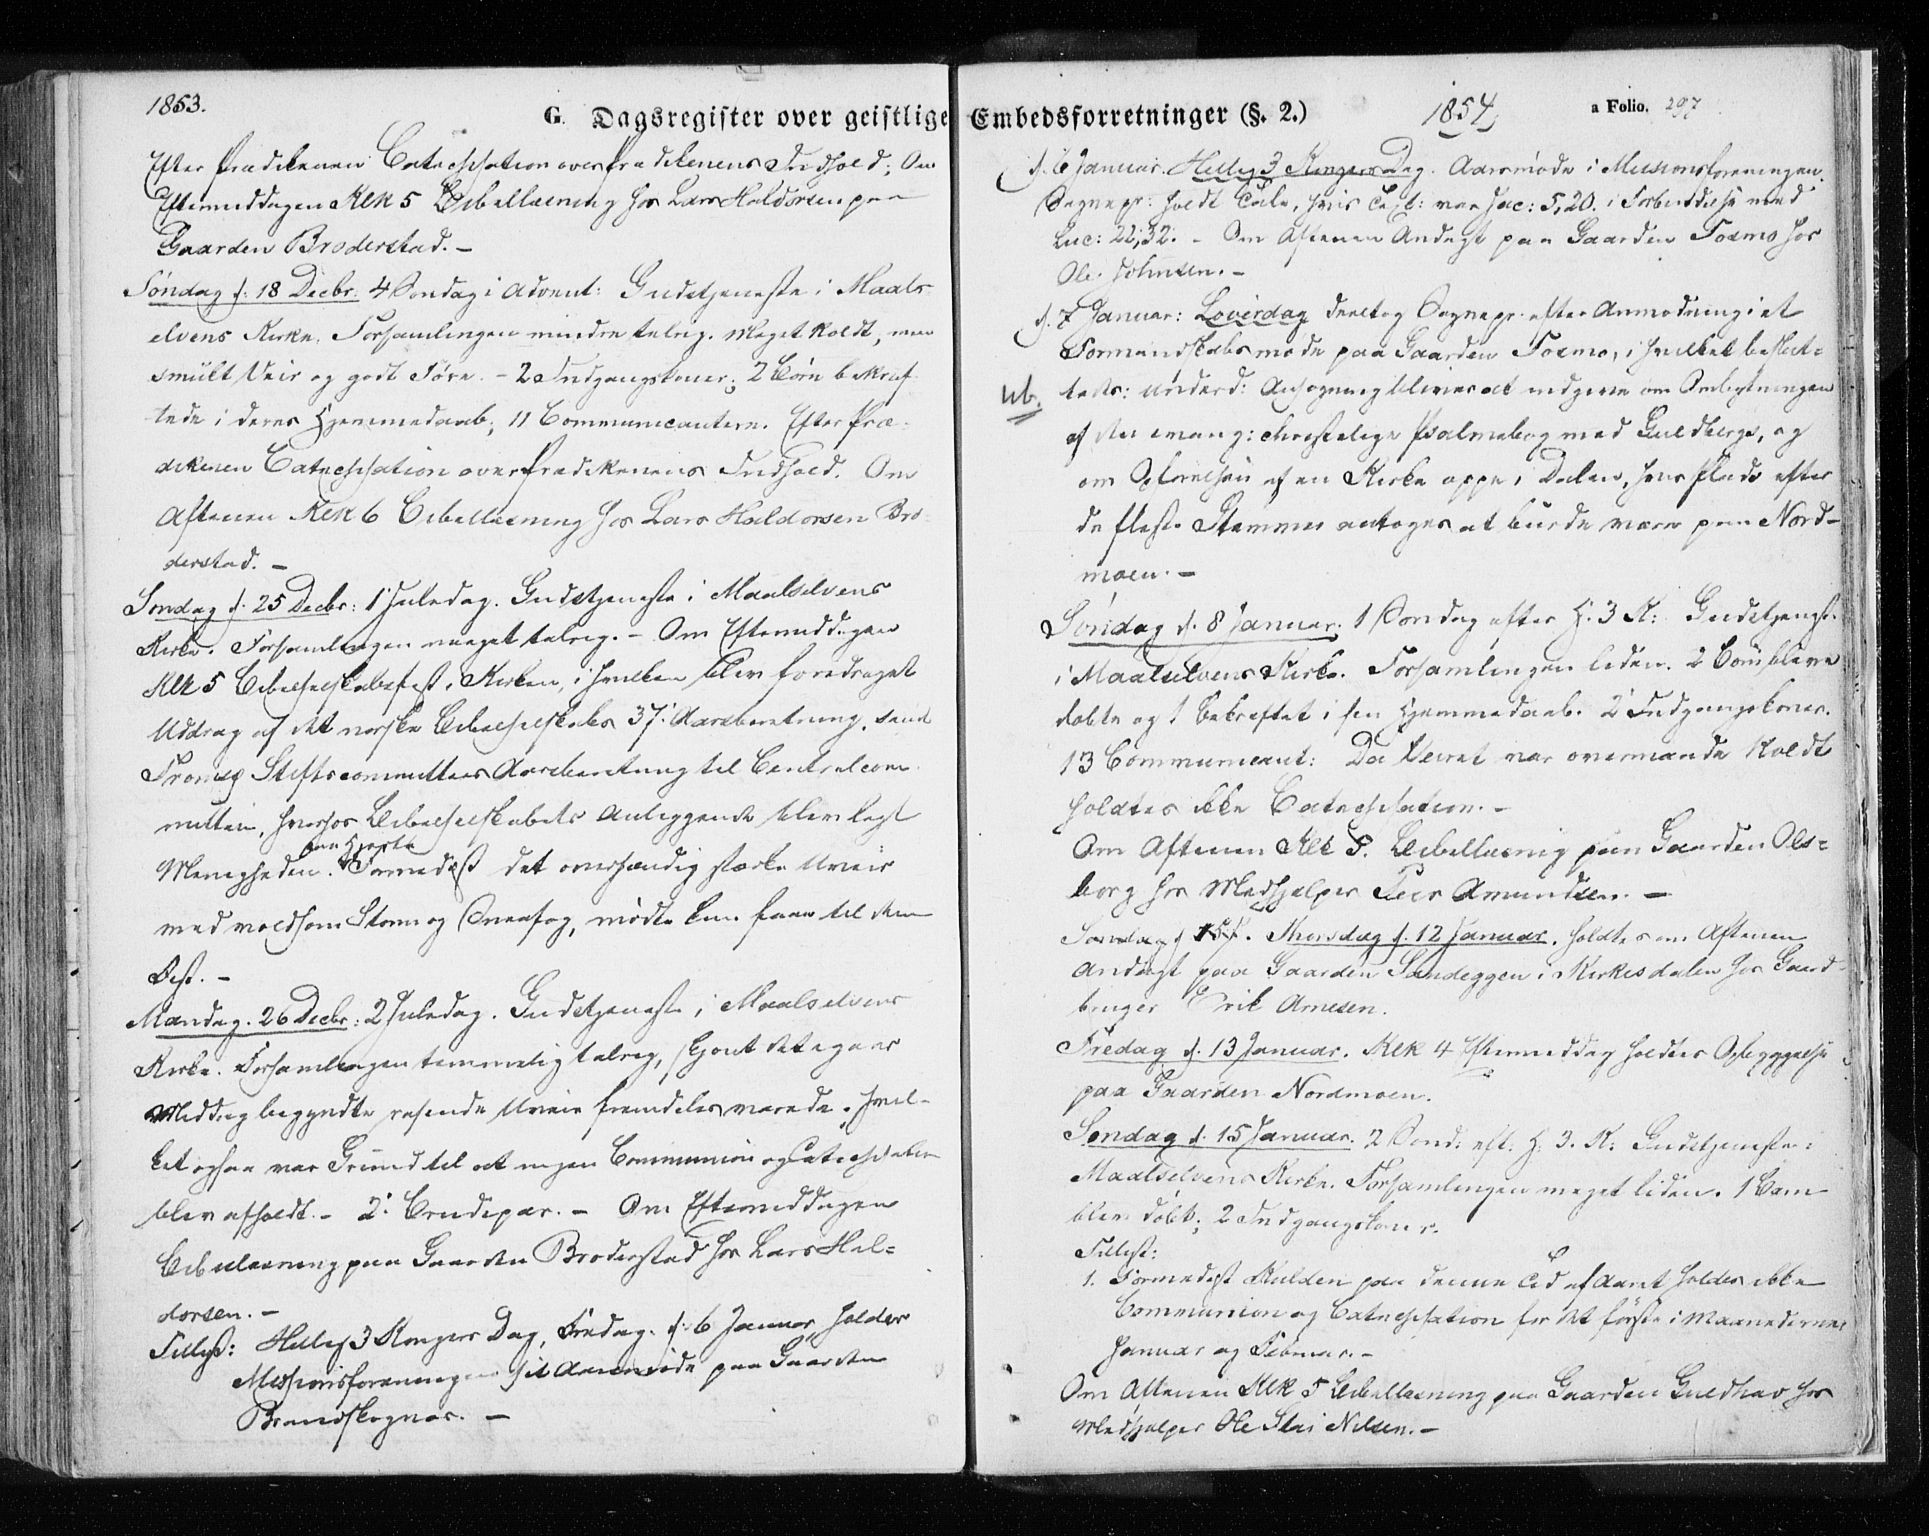 1853.
G. Dagsregister over geistlige
Efter Prædikenen Catechisation over Prædikenens Indhold; Om
Eftermiddagen Klk 5 Bibellæsning hos Lars Haldorsen paa
Gaarden Broderstad. –
Søndag d: 18 Decbr. 4 Søndag i Advent: Gudstjeneste i Maals
elvens Kirke. Forsamlingen mindre talrig. Meget koldt, men
smült Veir og godt Føre. – 2 Indgangskoner; 2 Børn bekræf
tede i deres Hjemmedaab; 11 Communicantere. Efter Præ-
dikenen Catechisation over Prædikenens Indhold. Om
Aftenen Klk 6 Bibellæsning hos Lars Haldorsen Bro
derstad. –
Søndag d. 25 Decbr: 1 Juledag. Gudstjeneste i Maalselvens
Kirke. Forsamlingen meget talrig. – Om Eftermiddagen
Klk 5 Bibelselskabsfest i Kirken, i hvilken blev foredraget
Uddrag af det norske Bibelselskabs 37. Aarsberetning, samt
Tromsø Stiftscommittees Aarsberetning til Centralcom
mitteen, hvorhos Bibelselskabets Anliggende blev lagt
Menigheden paa Hjerte. Formedelst det overhændig stærke Uveir
med voldsom Storm og Sneefog, mødte kun faae til denne
Fest. –
Mandag. 26 Decbr: 2 Juledag. Gudstjeneste i Maalselvens
Kirke. Forsamlingen temmelig talrig, skjønt det igaar
Middag begyndte rasende Uveir fremdeles varede, hvil-
ket ogsaa var Grund til at ingen Communion og Catechisation
blev afholdt. – 2 Brudepar. – Om Eftermiddagen
Bibellæsning paa Gaarden Broderstad hos Lars Hal=
dorsen. –
Tillyst: Hellig 3 Kongers Dag, Fredag. d: 6 Januar, holder
Missionsforeningen sit Aarsmøde paa Gaarden
Brandskognæs. –
Embedsforretninger (§. 2.)
1854
a Folio. 297
d. 6 Januar. Hellig 3 Kongers Dag. Aarsmøde i Missionsforeningen.
Sognepr: holdt Tale, hvis Text: var Jac: 5,20. i Forbindelse med
Luc: 22,32. – Om Aftenen Andagt paa Gaarden Foxmo hos
Ole Johnsen. –
d. 7 Januar: Løverdag deeltog Sognepr. efter Anmodning i et
Formandskabsmøde paa Gaarden Foxmo, i hvilket beslut=
Nb. tedes: underd: Ansøgning bliver at indgive om Ombytningen
af den evang: christelige Psalmebog med Guldbergs, og
om Opførelsen af en Kirke oppe i Dalen, hvis Plads efter
de fleste Stemmer antoges at burde være paa Nord-
moen. –
Søndag d. 8 Januar. 1 Søndag efter H. 3 K: Gudstjenest.
i Maalselvens Kirke. Forsamlingen liden. 2 Børn bleve
døbte og 1 bekræftet i sin Hjemmedaab. 2 Indgangskoner.
13 Communicant: Da Veiret var overmaade koldt
holdtes ikke Catechisation. –
Om Aftenen Klk 5. Bibellæsning paa Gaarden Ols=
borg hos Medhjelper Peer Amundsen. –
Søndag d 15. Thorsdag d. 12 Januar. holdtes om Aftenen
Andagt paa Gaarden Sandeggen i Kirkesdalen hos Gaard-
bruger Erik Arnesen.
Fredag d. 13 Januar. Klk 4 Eftermiddag holdtes Opbyggelse
paa Gaarden Nordmoen.
Søndag d. 15 Januar. 2 Sønd: eft: H. 3. K: Gudstjeneste i
Maalselvens Kirke. Forsamlingen meget liden. 1 Barn
blev døbt; 2 Indgangskoner.
Tillyst:
1. Formedelst Kulden paa denne Tid af Aaret holdes ikke
Communion og Catechisation for det første i Maanederne
Januar og Februar. –
Om Aftenen Klk 5 Bibellæsning paa Gaarden Guldhav hos
Medhjelper Ole Nilsen. –